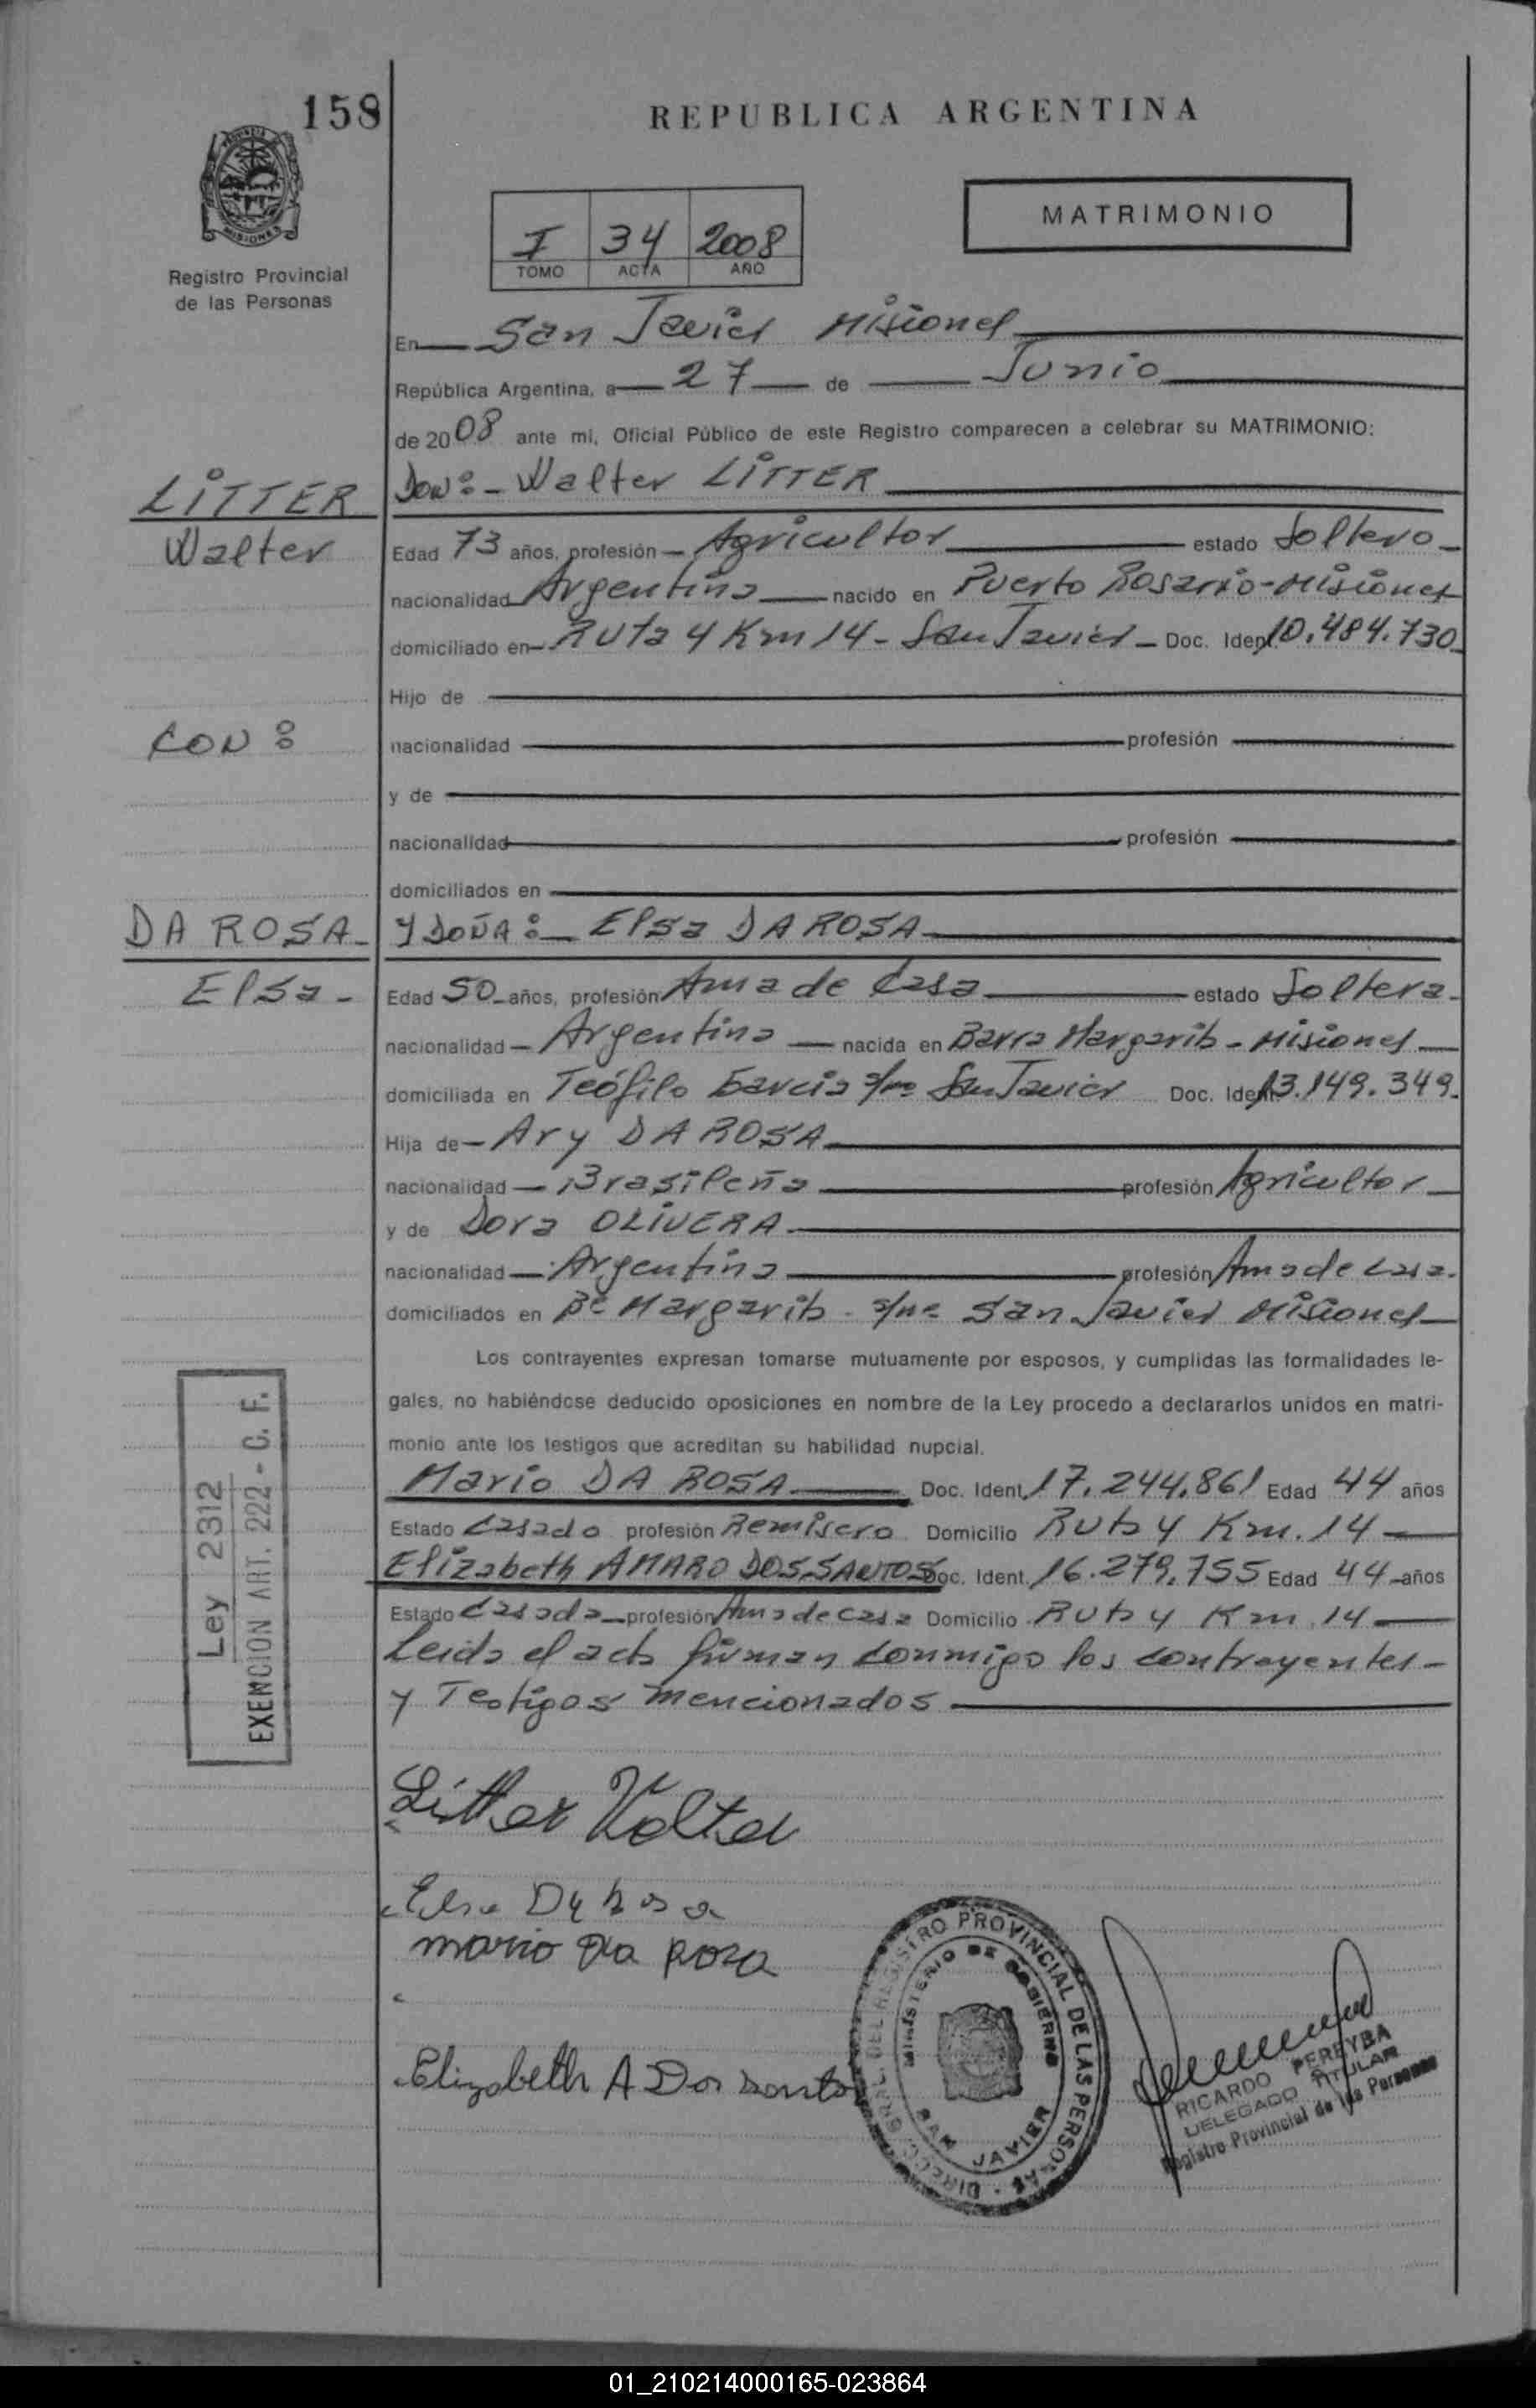 158
REPUBLICA ARGENTINA
PROVINCIA
MISIONES
Registro Provincial
de las Personas
MATRIMONIO
I 34 2008
TOMO ACTA AÑO
En San Javier Misiones
República Argentina, a 27 de Junio
de 2008 ante mi, Oficial Público de este Registro comparecen a celebrar su MATRIMONIO:
LITTER
Walter
Don:- Walter LITTER
Edad 73 años, profesión - Agricultor estado Soltero-
nacionalidad Argentina nacido en Puerto Rosario-Misiones
domiciliado en- Ruta 4 Km 14- San Javier - Doc. Ident. 10.484.730
Hijo de
CON:
nacionalidad profesión
y de
nacionalidad profesión
domiciliados en
DA ROSA-
Elsa-
Y DOÑA:- Elsa DA ROSA
Edad 50 años, profesión Ama de Casa estado Soltera-
nacionalidad - Argentina nacida en Barra Margarita - Misiones
domiciliada en Teófilo Garcia s/nº San Javier Doc. Ident. 13.149.349.
Hija de - Ary DA ROSA
nacionalidad - Brasileña profesión Agricultor
y de Dora OLIVERA
nacionalidad - Argentina profesión Ama de casa.
domiciliados en Bª Margarita - s/nº San Javier Misiones
Los contrayentes expresan tomarse mutuamente por esposos, y cumplidas las formalidades le-
gales, no habiéndose deducido oposiciones en nombre de la Ley procedo a declararlos unidos en matri-
monio ante los testigos que acreditan su habilidad nupcial.
Mario DA ROSA Doc. Ident. 17.244.861 Edad 44 años
Estado Casado profesión Remisero Domicilio Ruta 4 Km. 14
Elizabeth AMARO DOS SANTOS Doc. Ident. 16.279.755 Edad 44 años
Estado Casada profesión Ama de casa Domicilio Ruta 4 Km. 14
Leida el acta firman conmigo los contrayentes-
y Testigos mencionados
Ley 2312
EXENCION ART. 222 - C. F.
Litter Walter
Elsa Da Rosa
mario Da Rosa
Elizabeth A Dos Santos
DIRECC. GRAL. DEL REGISTRO PROVINCIAL DE LAS PERSONAS
MINISTERIO DE GOBIERNO
SAN JAVIER
RICARDO PEREYRA
DELEGADO TITULAR
Registro Provincial de las Personas
01_210214000165-023864